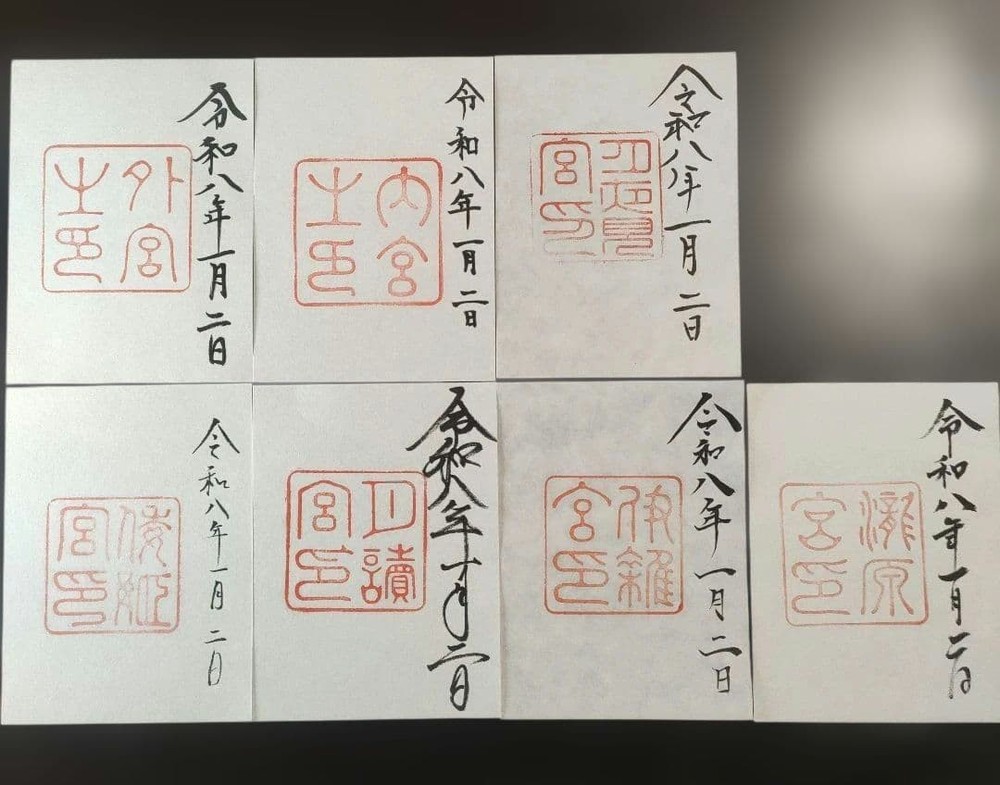 令和八年一月二日
外宮
之印
令和八年一月二日
内宮
之印
令和八年一月二日
月夜見
宮印
令和八年一月二日
倭姫
宮印
令和八年一月二日
月讀
宮印
令和八年一月二日
伊雜
宮印
令和八年一月二日
瀧原
宮印